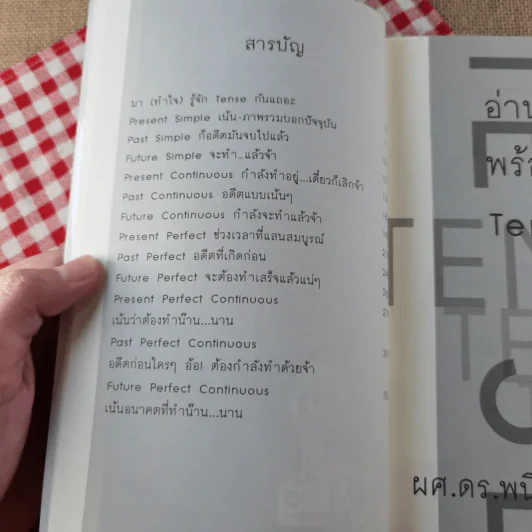 สารบัญ
มา (ทำใจ) รู้จัก Tense กันเถอะ
Present Simple เน้น-ภาพรวมบอกปัจจุบัน
Past Simple ก็อดีตมันจบไปแล้ว
Future Simple จะทำ...แล้วจ้า
Present Continuous กำลังทำอยู่...เดี๋ยวก็เลิกจ้า
Past Continuous อดีตแบบเน้นๆ
Future Continuous กำลังจะทำแล้วจ้า
Present Perfect ช่วงเวลาที่แสนสมบูรณ์
Past Perfect อดีตที่เกิดก่อน
Future Perfect จะต้องทำเสร็จแล้วแน่ๆ
Present Perfect Continuous
เน้นว่าต้องทำน๊าน...นาน
Past Perfect Continuous
อดีตก่อนใครๆ อ้อ! ต้องกำลังทำด้วยจ้า
Future Perfect Continuous
เน้นอนาคตที่ทำน๊าน...นาน
อ่าน
พร้อ
Ten
TEN
TE
ผศ.ดร.พนิ